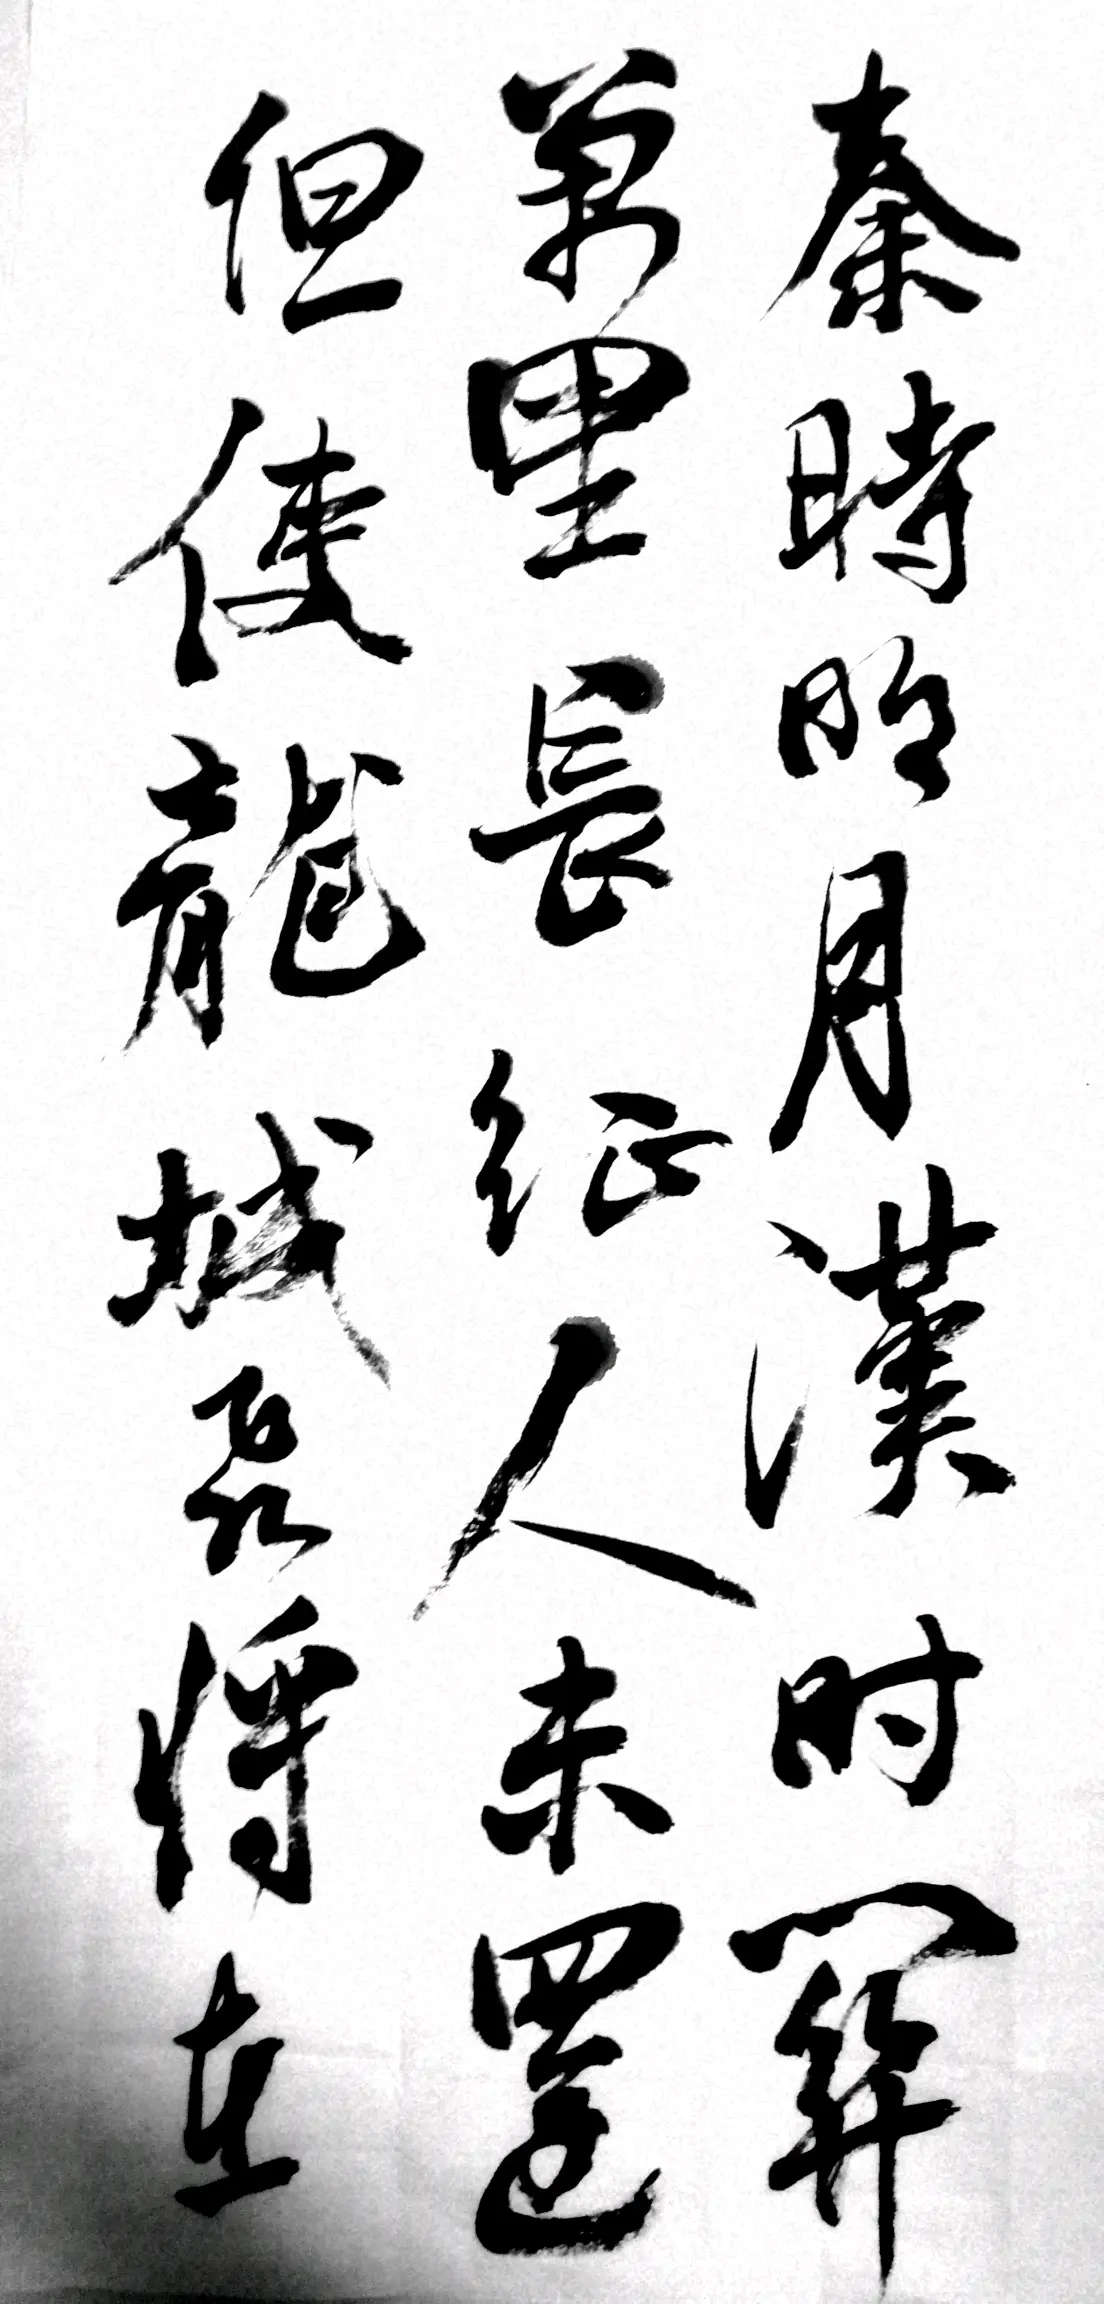 秦時明月漢时關
萬里長征人未還
但使龍城飛將在